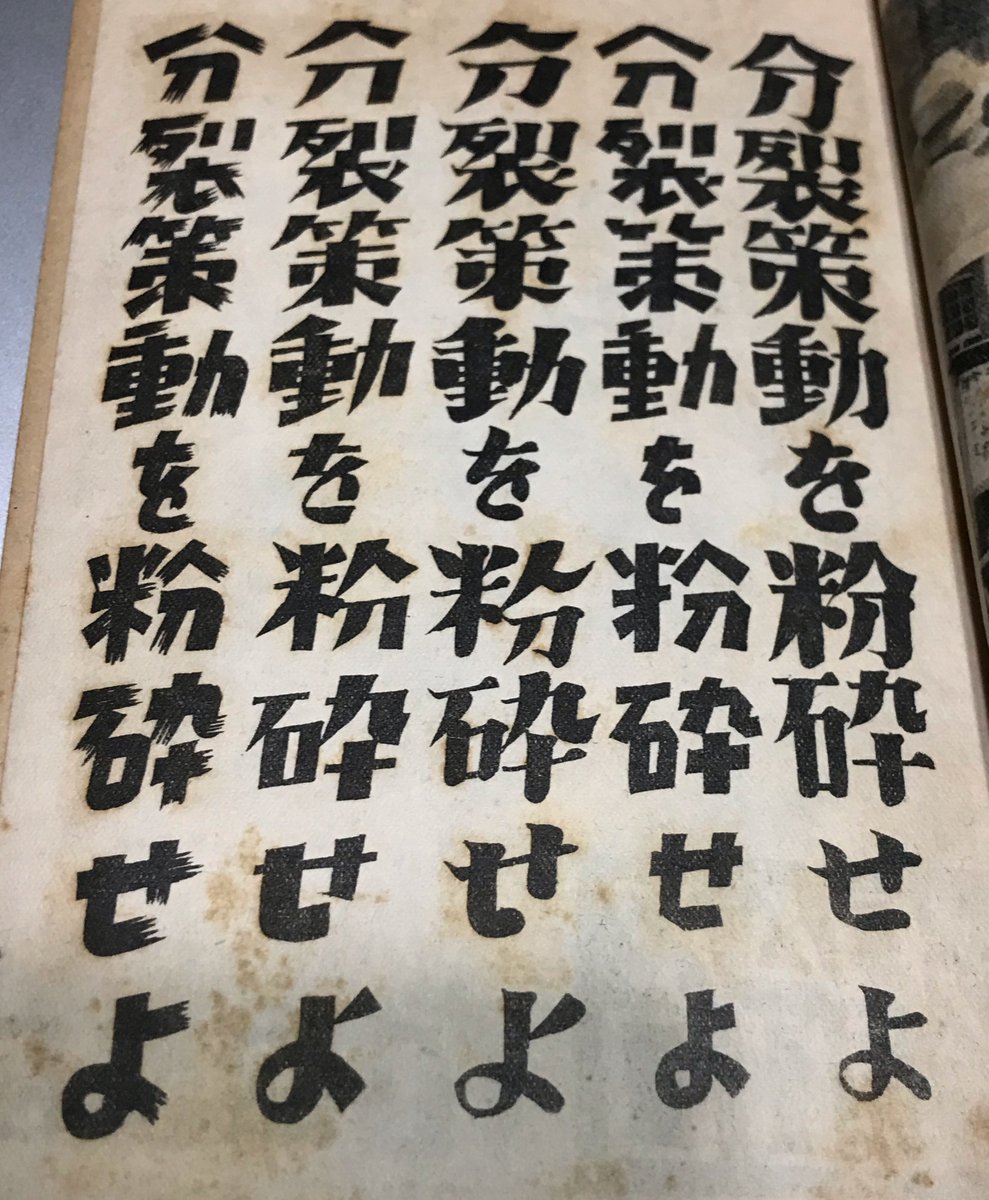 分裂策動を粉砕せよ
分裂策動を粉砕せよ
分裂策動を粉砕せよ
分裂策動を粉砕せよ
分裂策動を粉砕せよ